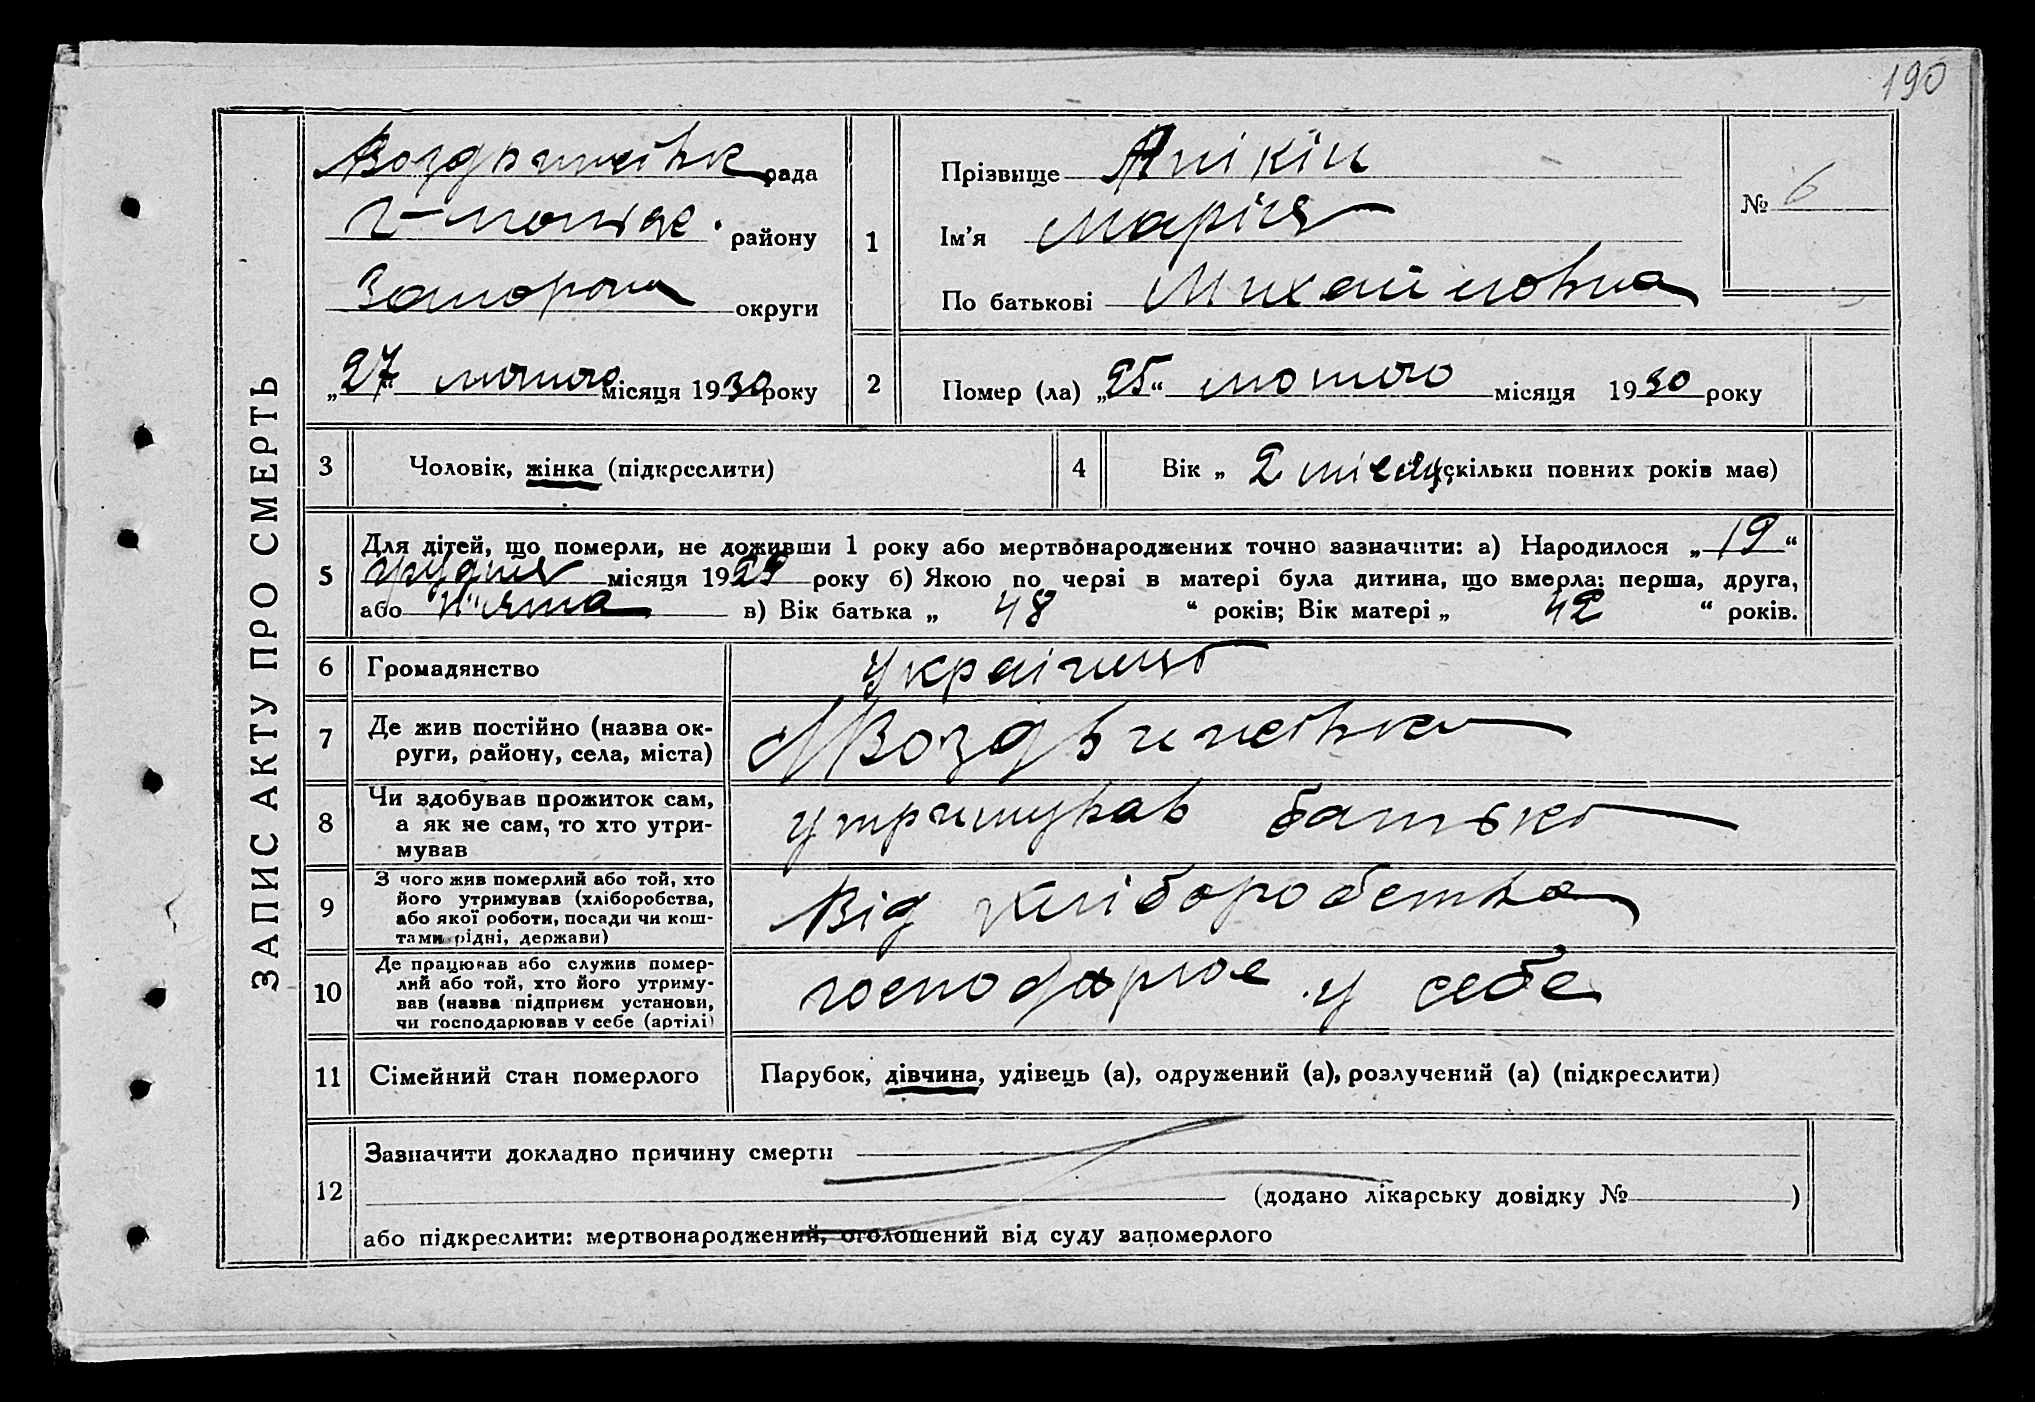 190
ЗАПИС АКТУ ПРО СМЕРТЬ
рада
району
Запорож округи
„27“ лютого місяця 1930 року
1
Прізвище Анікін
Ім’я Марія
По батькові Михайловна
№ 6
2
Помер (ла) „25“ лютого місяця 1930 року
3
Чоловік, жінка (підкреслити)
4
Вік „ 2 місяц. скільки повних років має)
5
Для дітей, що померли, не доживши 1 року або мертвонароджених точно зазначити: а) Народилося „19“
грудня місяця 1929 року б) Якою по черзі в матері була дитина, що вмерла: перша, друга,
або п'ята в) Вік батька „ 48 “ років; Вік матері „ 42 “ років.
6
Громадянство
7
Де жив постійно (назва ок-
руги, району, села, міста)
8
Чи здобував прожиток сам,
а як не сам, то хто утри-
мував
утримував батько
9
З чого жив померлий або той, хто
його утримував (хліборобства,
або якої роботи, посади чи кош-
тами рідні, держави)
Від хліборобства
10
Де працював або служив помер-
лий або той, хто його утриму-
вав (назва підприєм установи,
чи господарював у себе (артілі)
господарює у себе
11
Сімейний стан померлого
Парубок, дівчина, удівець (а), одружений (а), розлучений (а) (підкреслити)
12
Зазначити докладно причину смерти
(додано лікарську довідку № )
або підкреслити: мертвонароджений, оголошений від суду запомерлого